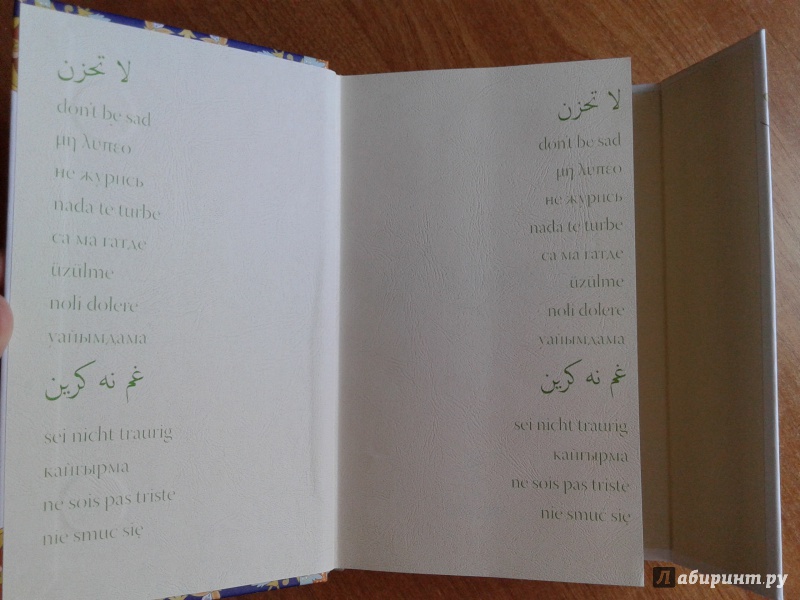 لا تحزن
don't be sad
μη λυπεο
не журись
nada te turbe
са ма гатде
üzülme
noli dolere
уайымдама
غم نه کرین
sei nicht traurig
кайгырма
ne sois pas triste
nie smuc się
لا تحزن
don't be sad
μη λυπεο
не журись
nada te turbe
са ма гатде
üzülme
noli dolere
уайымдама
غم نه کرین
sei nicht traurig
кайгырма
ne sois pas triste
nie smuc się
Лабиринт.ру